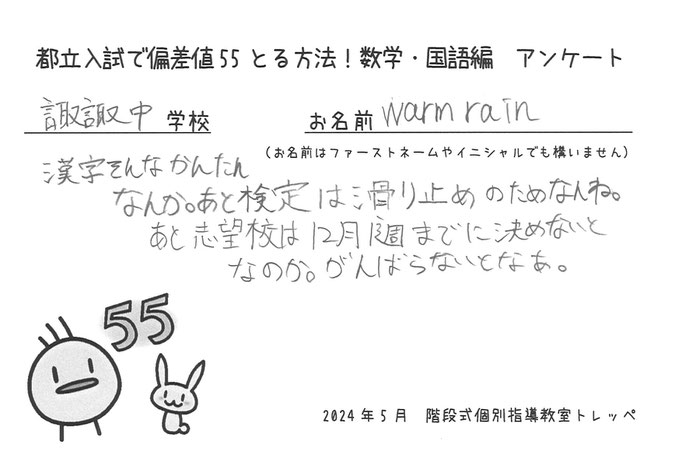 都立入試で偏差値55とる方法！数学・国語編 アンケート
諏諏中 学校 お名前 warm rain
（お名前はファーストネームやイニシャルでも構いません）
漢字そんなかんたん
なんか。あと検定は滑り止めのためなんね。
あと志望校は12月1週までに決めないと
なのか。がんばらないとなぁ。
55
2024年5月 階段式個別指導教室トレッペ